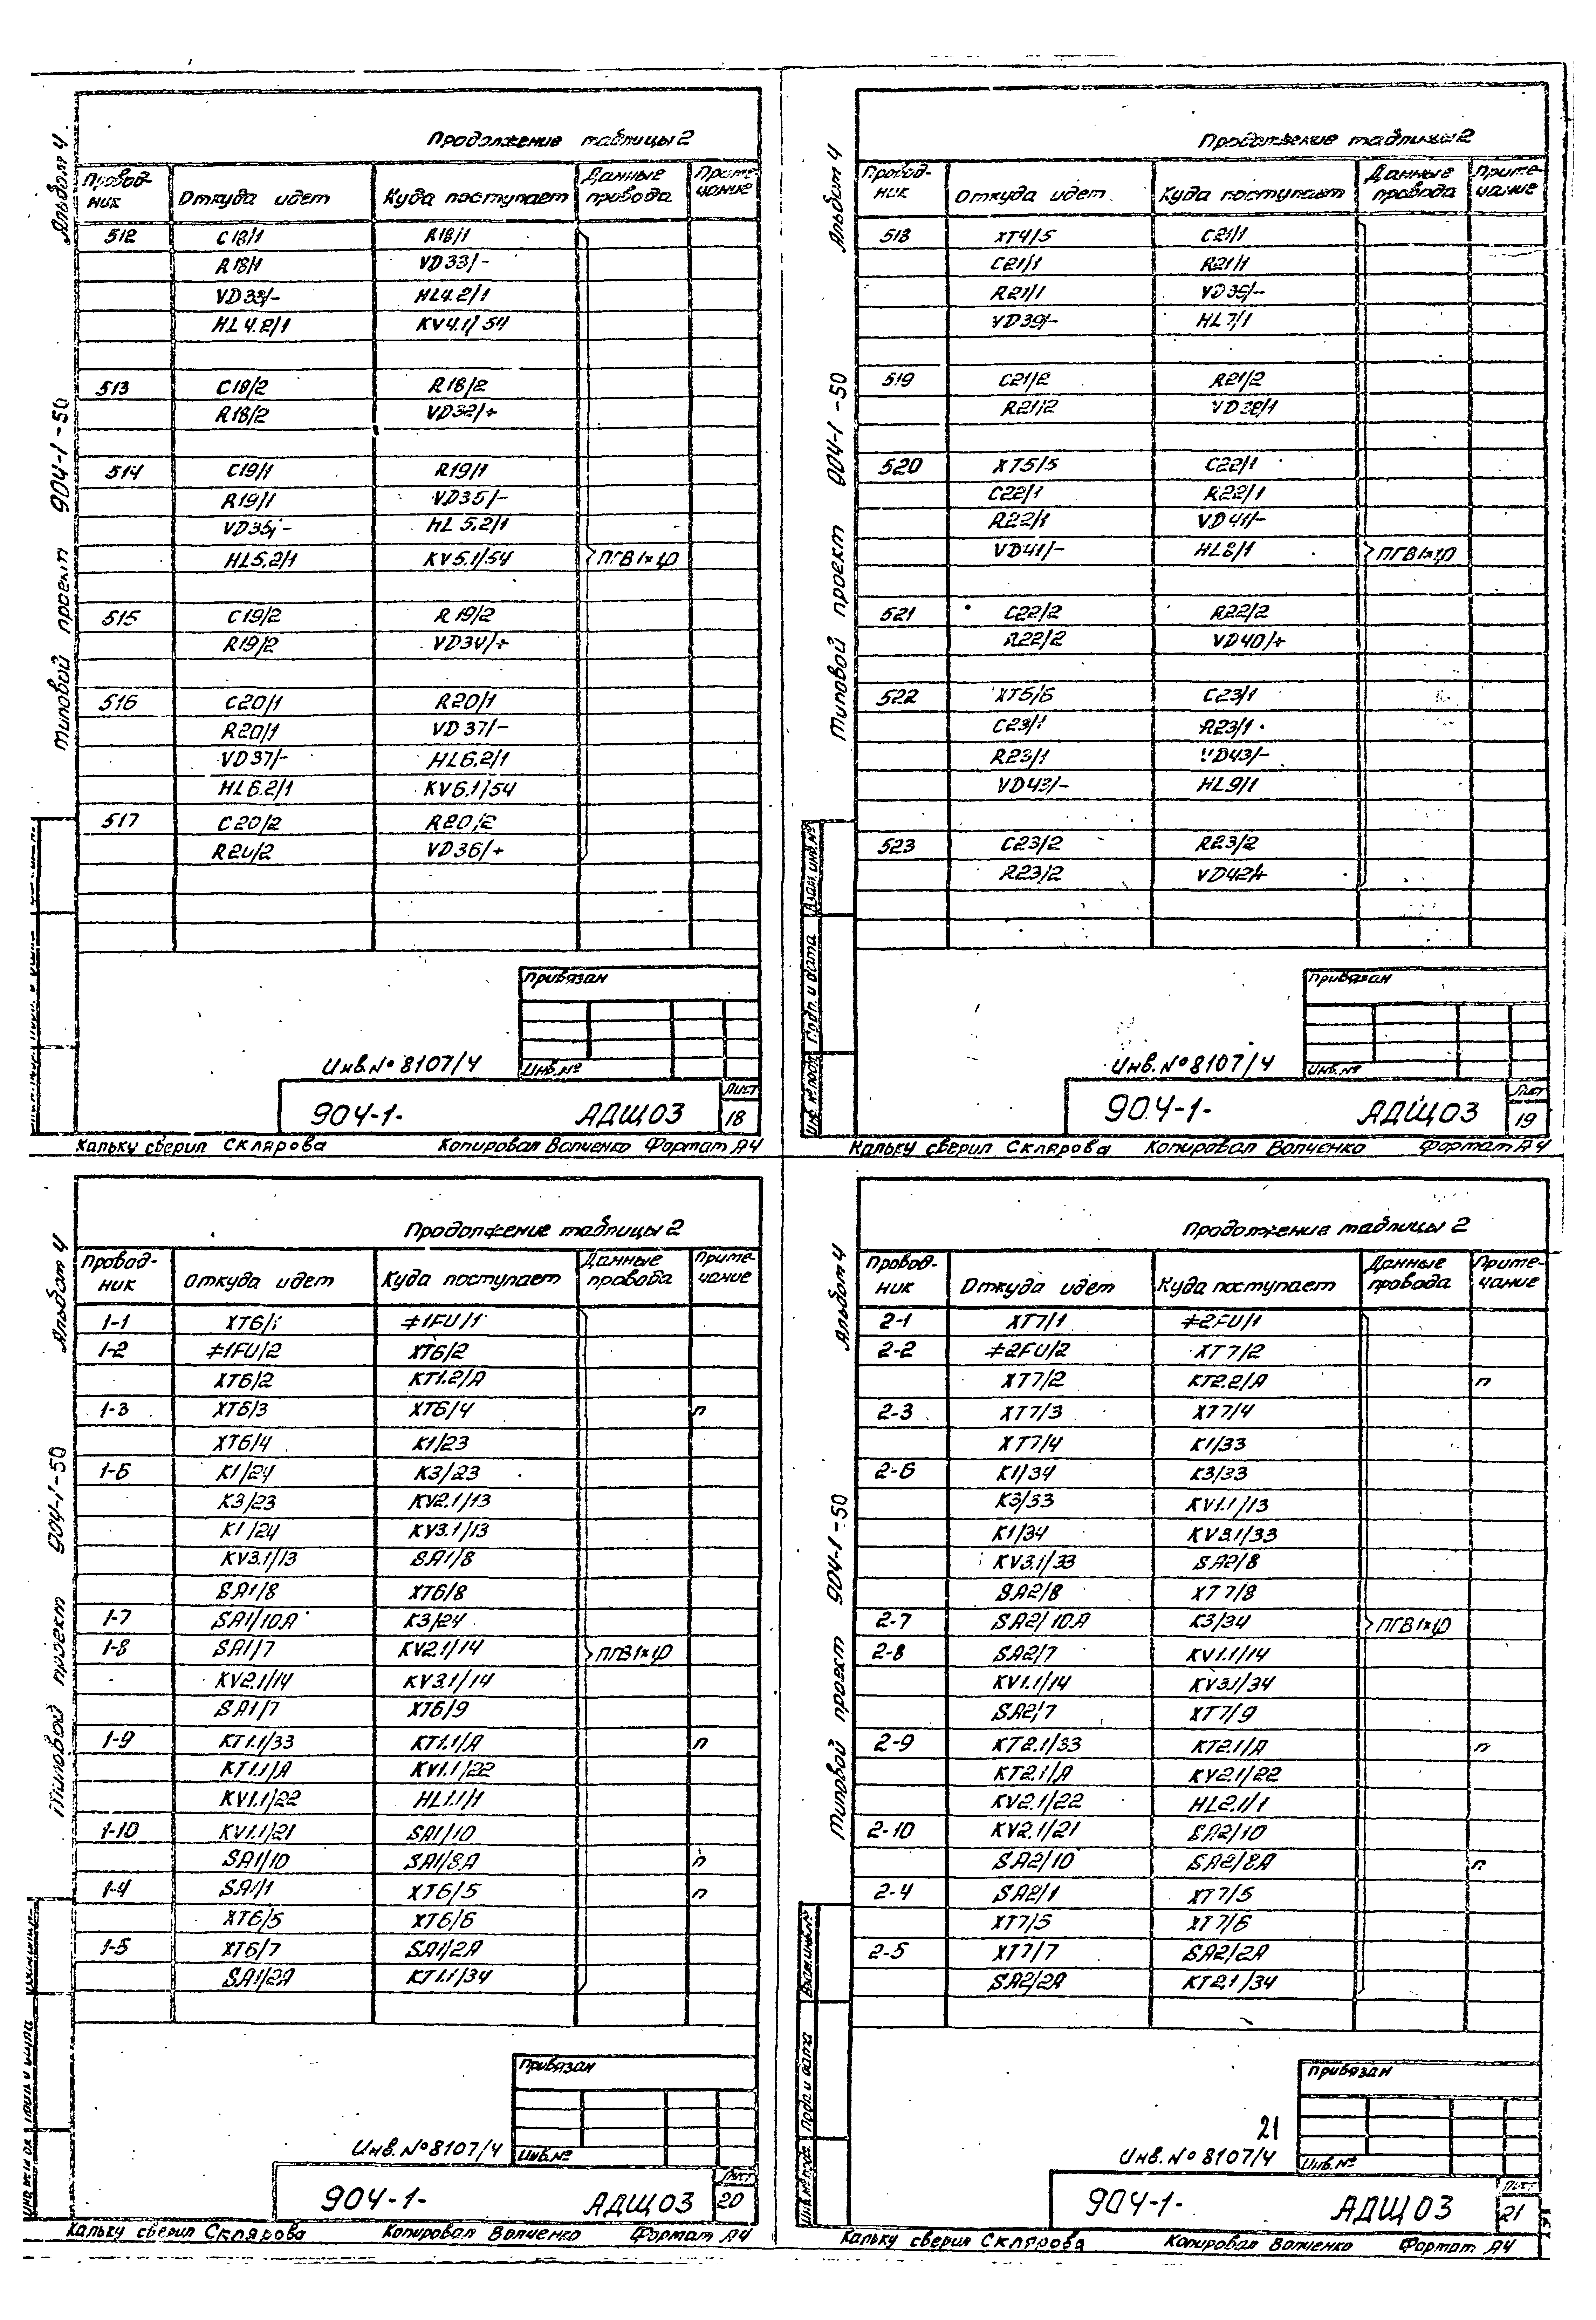 Альбом 4
Типовой проект 904-1-50
Продолжение таблицы 2
Провод-ник Откуда идет Куда поступает Данные провода Приме-чание
512 C18/1 R18/1
R18/1 VD33/-
VD33/- HL4.2/1
HL4.2/1 KV4.1/54
513 C18/2 R18/2
R18/2 VD32/+
514 C19/1 R19/1
R19/1 VD35/-
VD35/- HL5.2/1
HL5.2/1 KV5.1/54 ПГВ1×1,0
515 C19/2 R19/2
R19/2 VD34/+
516 C20/1 R20/1
R20/1 VD37/-
VD37/- HL6.2/1
HL6.2/1 KV6.1/54
517 C20/2 R20/2
R20/2 VD36/+
Привязан
Инв.№
Инв.№8107/4
904-1- АДЩ03 Лист 18
Кальку сверил Склярова Копировал Волченко Формат А4
Альбом 4
Типовой проект 904-1-50
Продолжение таблицы 2
Провод-ник Откуда идет Куда поступает Данные провода Приме-чание
518 XT4/5 C21/1
C21/1 R21/1
R21/1 VD39/-
VD39/- HL7/1
519 C21/2 R21/2
R21/2 VD38/1
520 XT5/5 C22/1
C22/1 R22/1
R22/1 VD41/-
VD41/- HL8/1 ПГВ1×1,0
521 C22/2 R22/2
R22/2 VD40/+
522 XT5/6 C23/1
C23/1 R23/1
R23/1 VD43/-
VD43/- HL9/1
523 C23/2 R23/2
R23/2 VD42/+
Взам.инв.№
Подп. и дата
Инв.№ подл.
Привязан
Инв.№
Инв.№8107/4
904-1- АДЩ03 Лист 19
Кальку сверил Склярова Копировал Волченко Формат А4
Альбом 4
Типовой проект 904-1-50
Продолжение таблицы 2
Провод-ник Откуда идет Куда поступает Данные провода Приме-чание
1-1 XT6/1 ≠1FU/1
1-2 ≠1FU/2 XT6/2
XT6/2 KT1.2/A
1-3 XT6/3 XT6/4 п
XT6/4 K1/23
1-6 K1/24 K3/23
K3/23 KV2.1/13
K1/24 KV3.1/13
KV3.1/13 SA1/8
SA1/8 XT6/8
1-7 SA1/10A K3/24
1-8 SA1/7 KV2.1/14 ПГВ1×1,0
KV2.1/14 KV3.1/14
SA1/7 XT6/9
1-9 KT1.1/33 KT1.1/A п
KT1.1/A KV1.1/22
KV1.1/22 HL1.1/1
1-10 KV1.1/21 SA1/10
SA1/10 SA1/8A п
1-4 SA1/1 XT6/5 п
XT6/5 XT6/6
1-5 XT6/7 SA1/2A
SA1/2A KT1.1/34
Привязан
Инв.№
Инв.№8107/4
904-1- АДЩ03 Лист 20
Кальку сверил Склярова Копировал Волченко Формат А4
Альбом 4
Типовой проект 904-1-50
Продолжение таблицы 2
Провод-ник Откуда идет Куда поступает Данные провода Приме-чание
2-1 XT7/1 ≠2FU/1
2-2 ≠2FU/2 XT7/2
XT7/2 KT2.2/A п
2-3 XT7/3 XT7/4
XT7/4 K1/33
2-6 K1/34 K3/33
K3/33 KV1.1/13
K1/34 KV3.1/33
KV3.1/33 SA2/8
SA2/8 XT7/8
2-7 SA2/10A K3/34 ПГВ1×1,0
2-8 SA2/7 KV1.1/14
KV1.1/14 KV3.1/34
SA2/7 XT7/9
2-9 KT2.1/33 KT2.1/A п
KT2.1/A KV2.1/22
KV2.1/22 HL2.1/1
2-10 KV2.1/21 SA2/10
SA2/10 SA2/8A п
2-4 SA2/1 XT7/5
XT7/5 XT7/6
2-5 XT7/7 SA2/2A
SA2/2A KT2.1/34
Взам.инв.№
Подп. и дата
Инв.№ подл.
Привязан
Инв.№
21
Инв.№8107/4
904-1- АДЩ03 Лист 21
Кальку сверил Склярова Копировал Волченко Формат А4